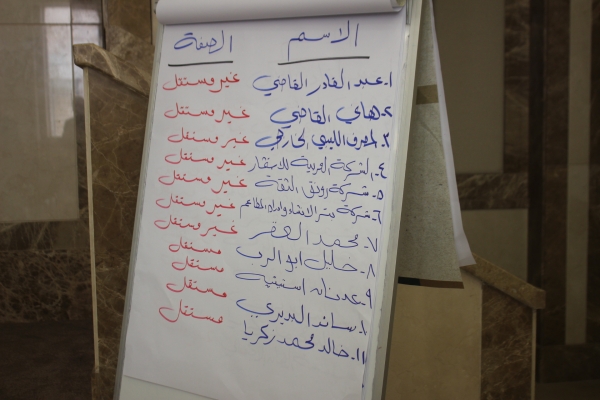 الاسم الصفة
١- عبد القادر القاضي غير مستقل
٢- هاني القاضي غير مستقل
٣- المصرف الليبي الخارجي غير مستقل
٤- الشركة العربية للاستثمار غير مستقل
٥- شركة رونق الثقة غير مستقل
٦- شركة لإنشاء وإدارة المطاعم غير مستقل
٧- محمد الصقر غير مستقل
٨- خليل ابو الرب مستقل
٩- عدنان استيتيه مستقل
١٠- سائد البديري مستقل
١١- خالد محمد زكريا مستقل